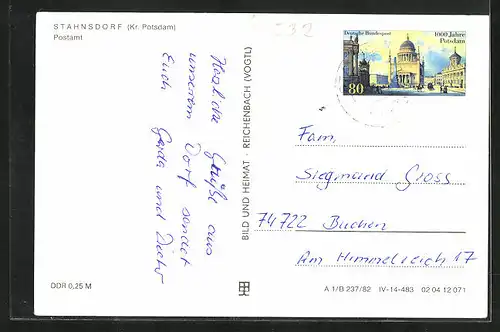 STAHNSDORF (Kr. Potsdam)
Postamt
Herzliche Grüße aus
unserem Dorf sendet
Euch Gerda und Dieter
DDR 0,25 M
BILD UND HEIMAT · REICHENBACH (VOGTL)
232
Deutsche Bundespost
1000 Jahre
Potsdam
80
Fam.
Siegmund Gross
74722 Buchen
Am Himmelreich 17
A 1/B 237/82 IV-14-483 02 04 12 071